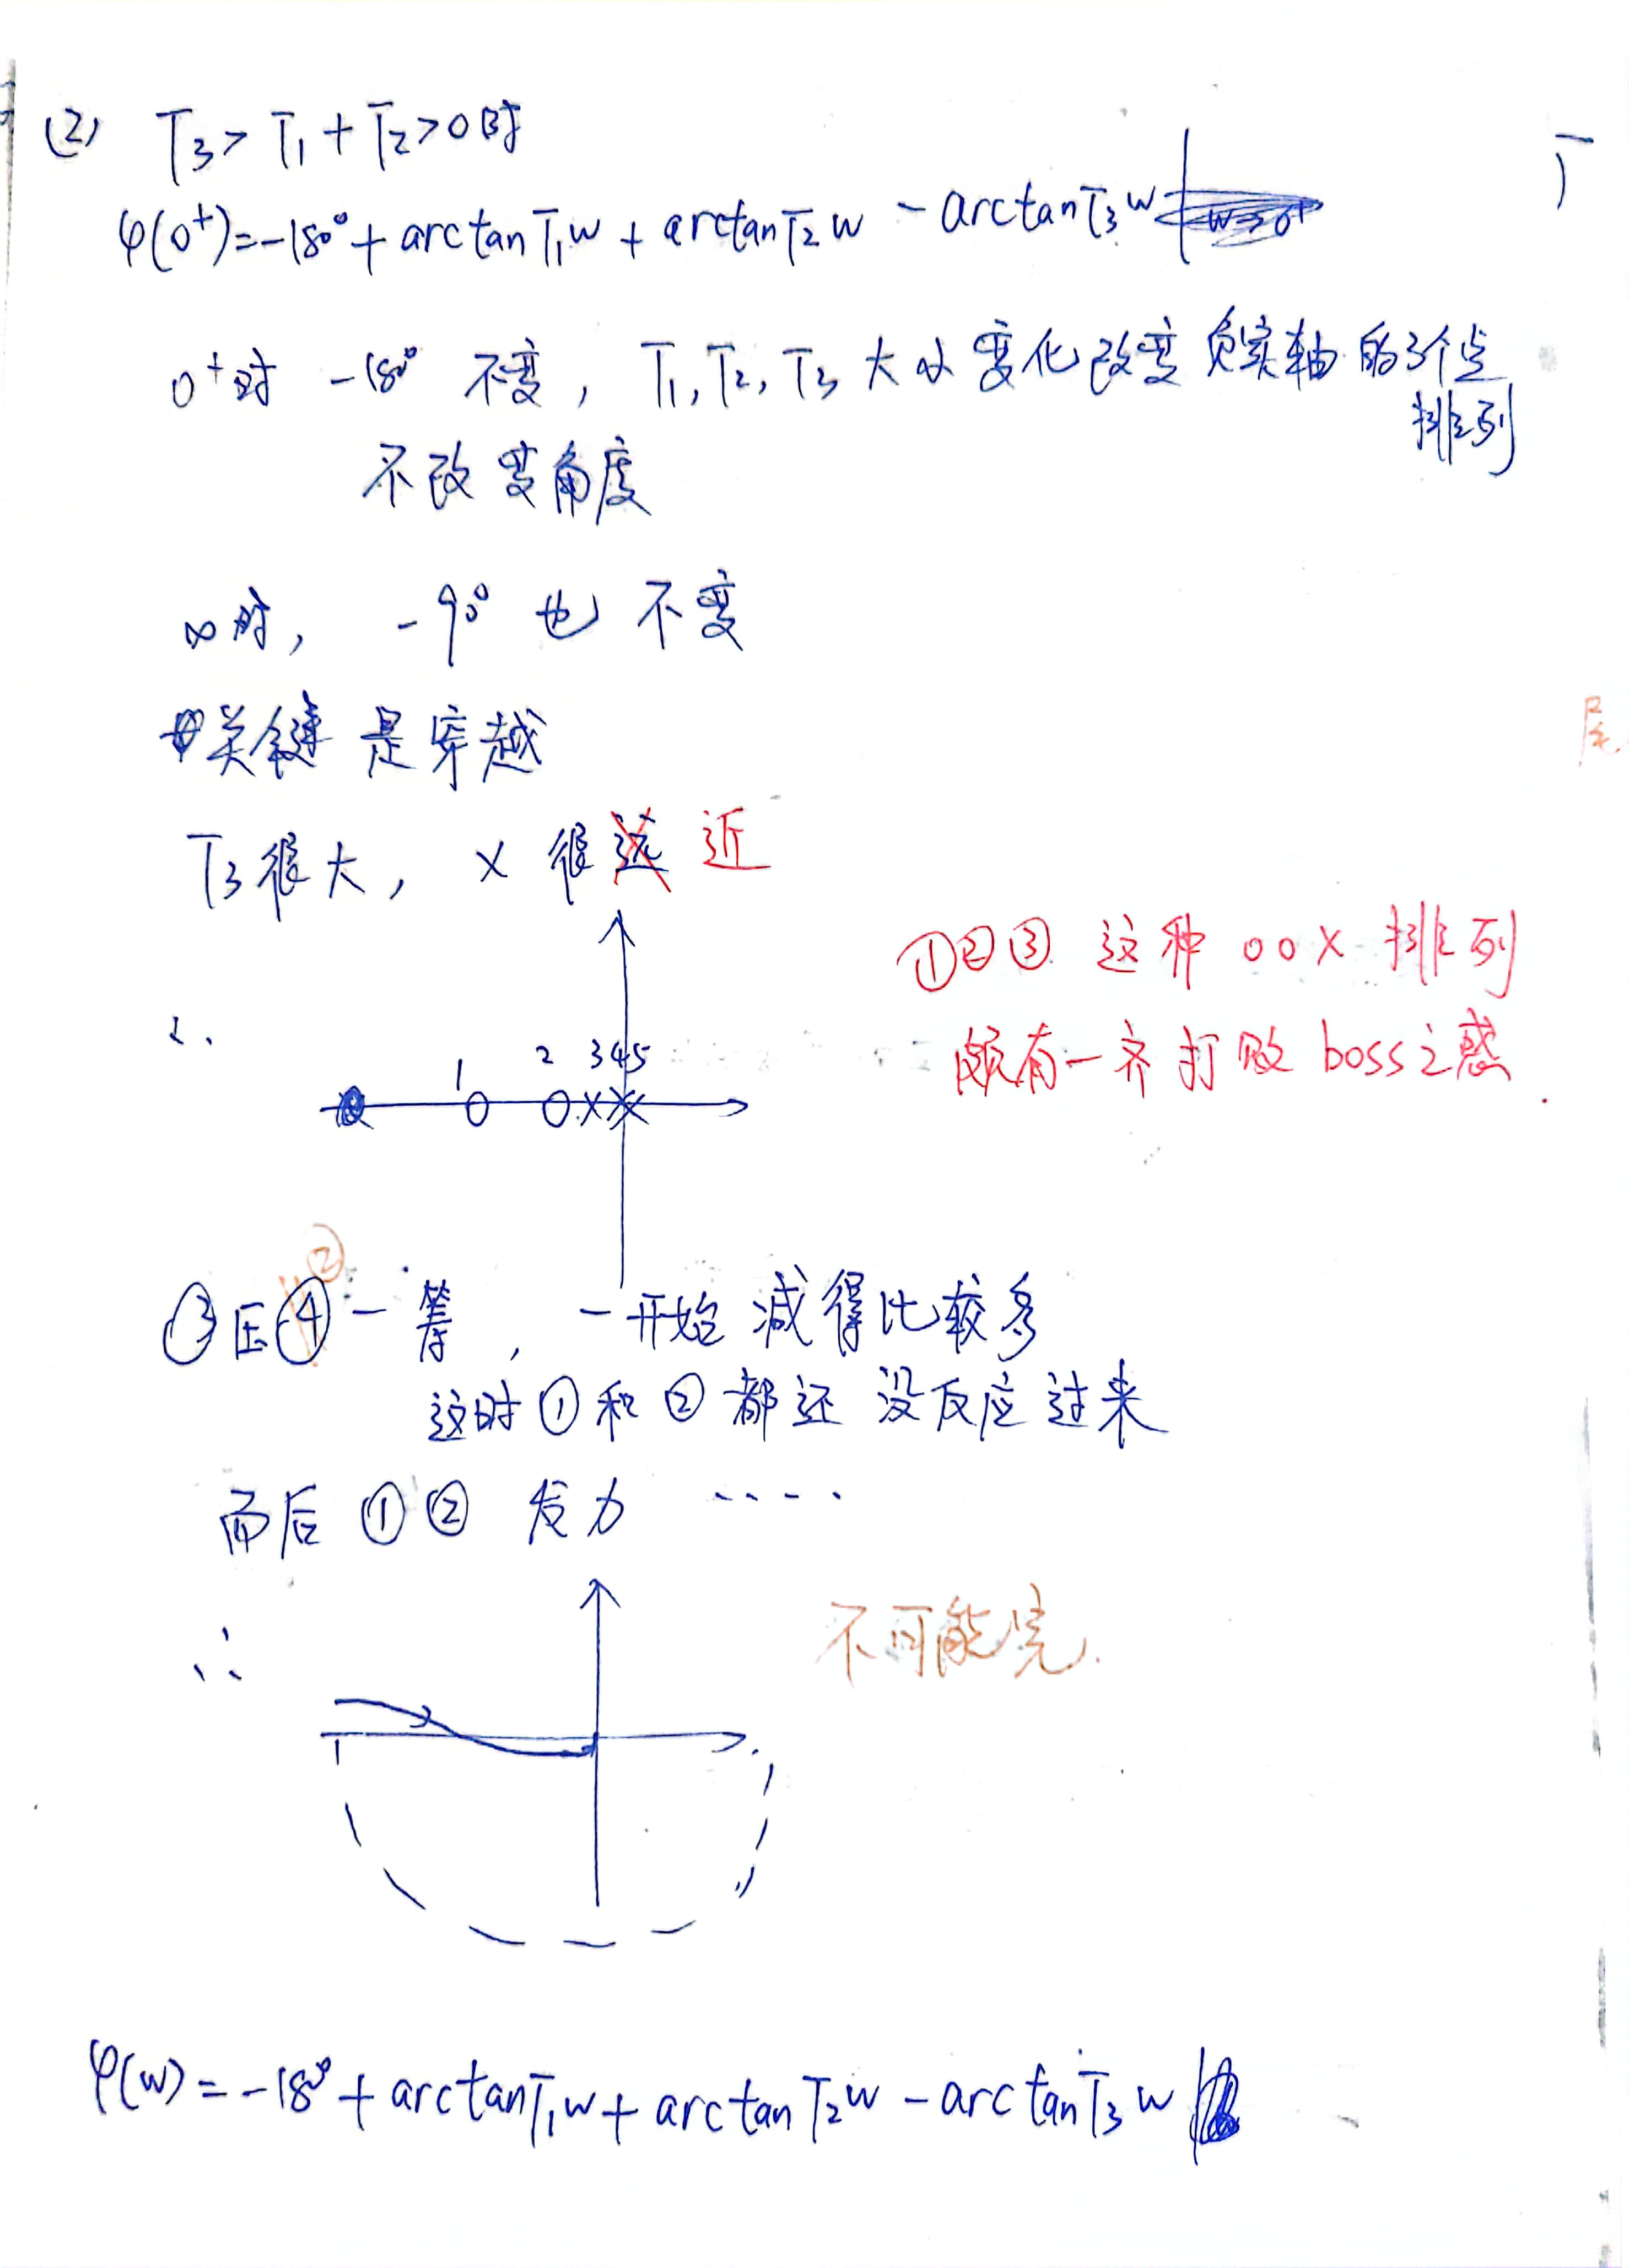 (2) T₃ > T₁ + T₂ > 0时
φ(0⁺) = -180° + arctan T₁w + arctan T₂w - arctan T₃w
0⁺时 -180° 不变, T₁, T₂, T₃ 大小变化改变负实轴的3个点
排列
不改变角度
∞时, -90° 也不变
关键是穿越
T₃很大, × 很远 近
①②③ 这种 00X 排列
颇有一齐打败boss之感.
1
2
3 4 5
②
③压④一筹, 一开始减得比较多
这时①和②都还没反应过来
而后①② 发力 ....
∴
不可能完.
φ(w) = -180° + arctan T₁w + arctan T₂w - arctan T₃w